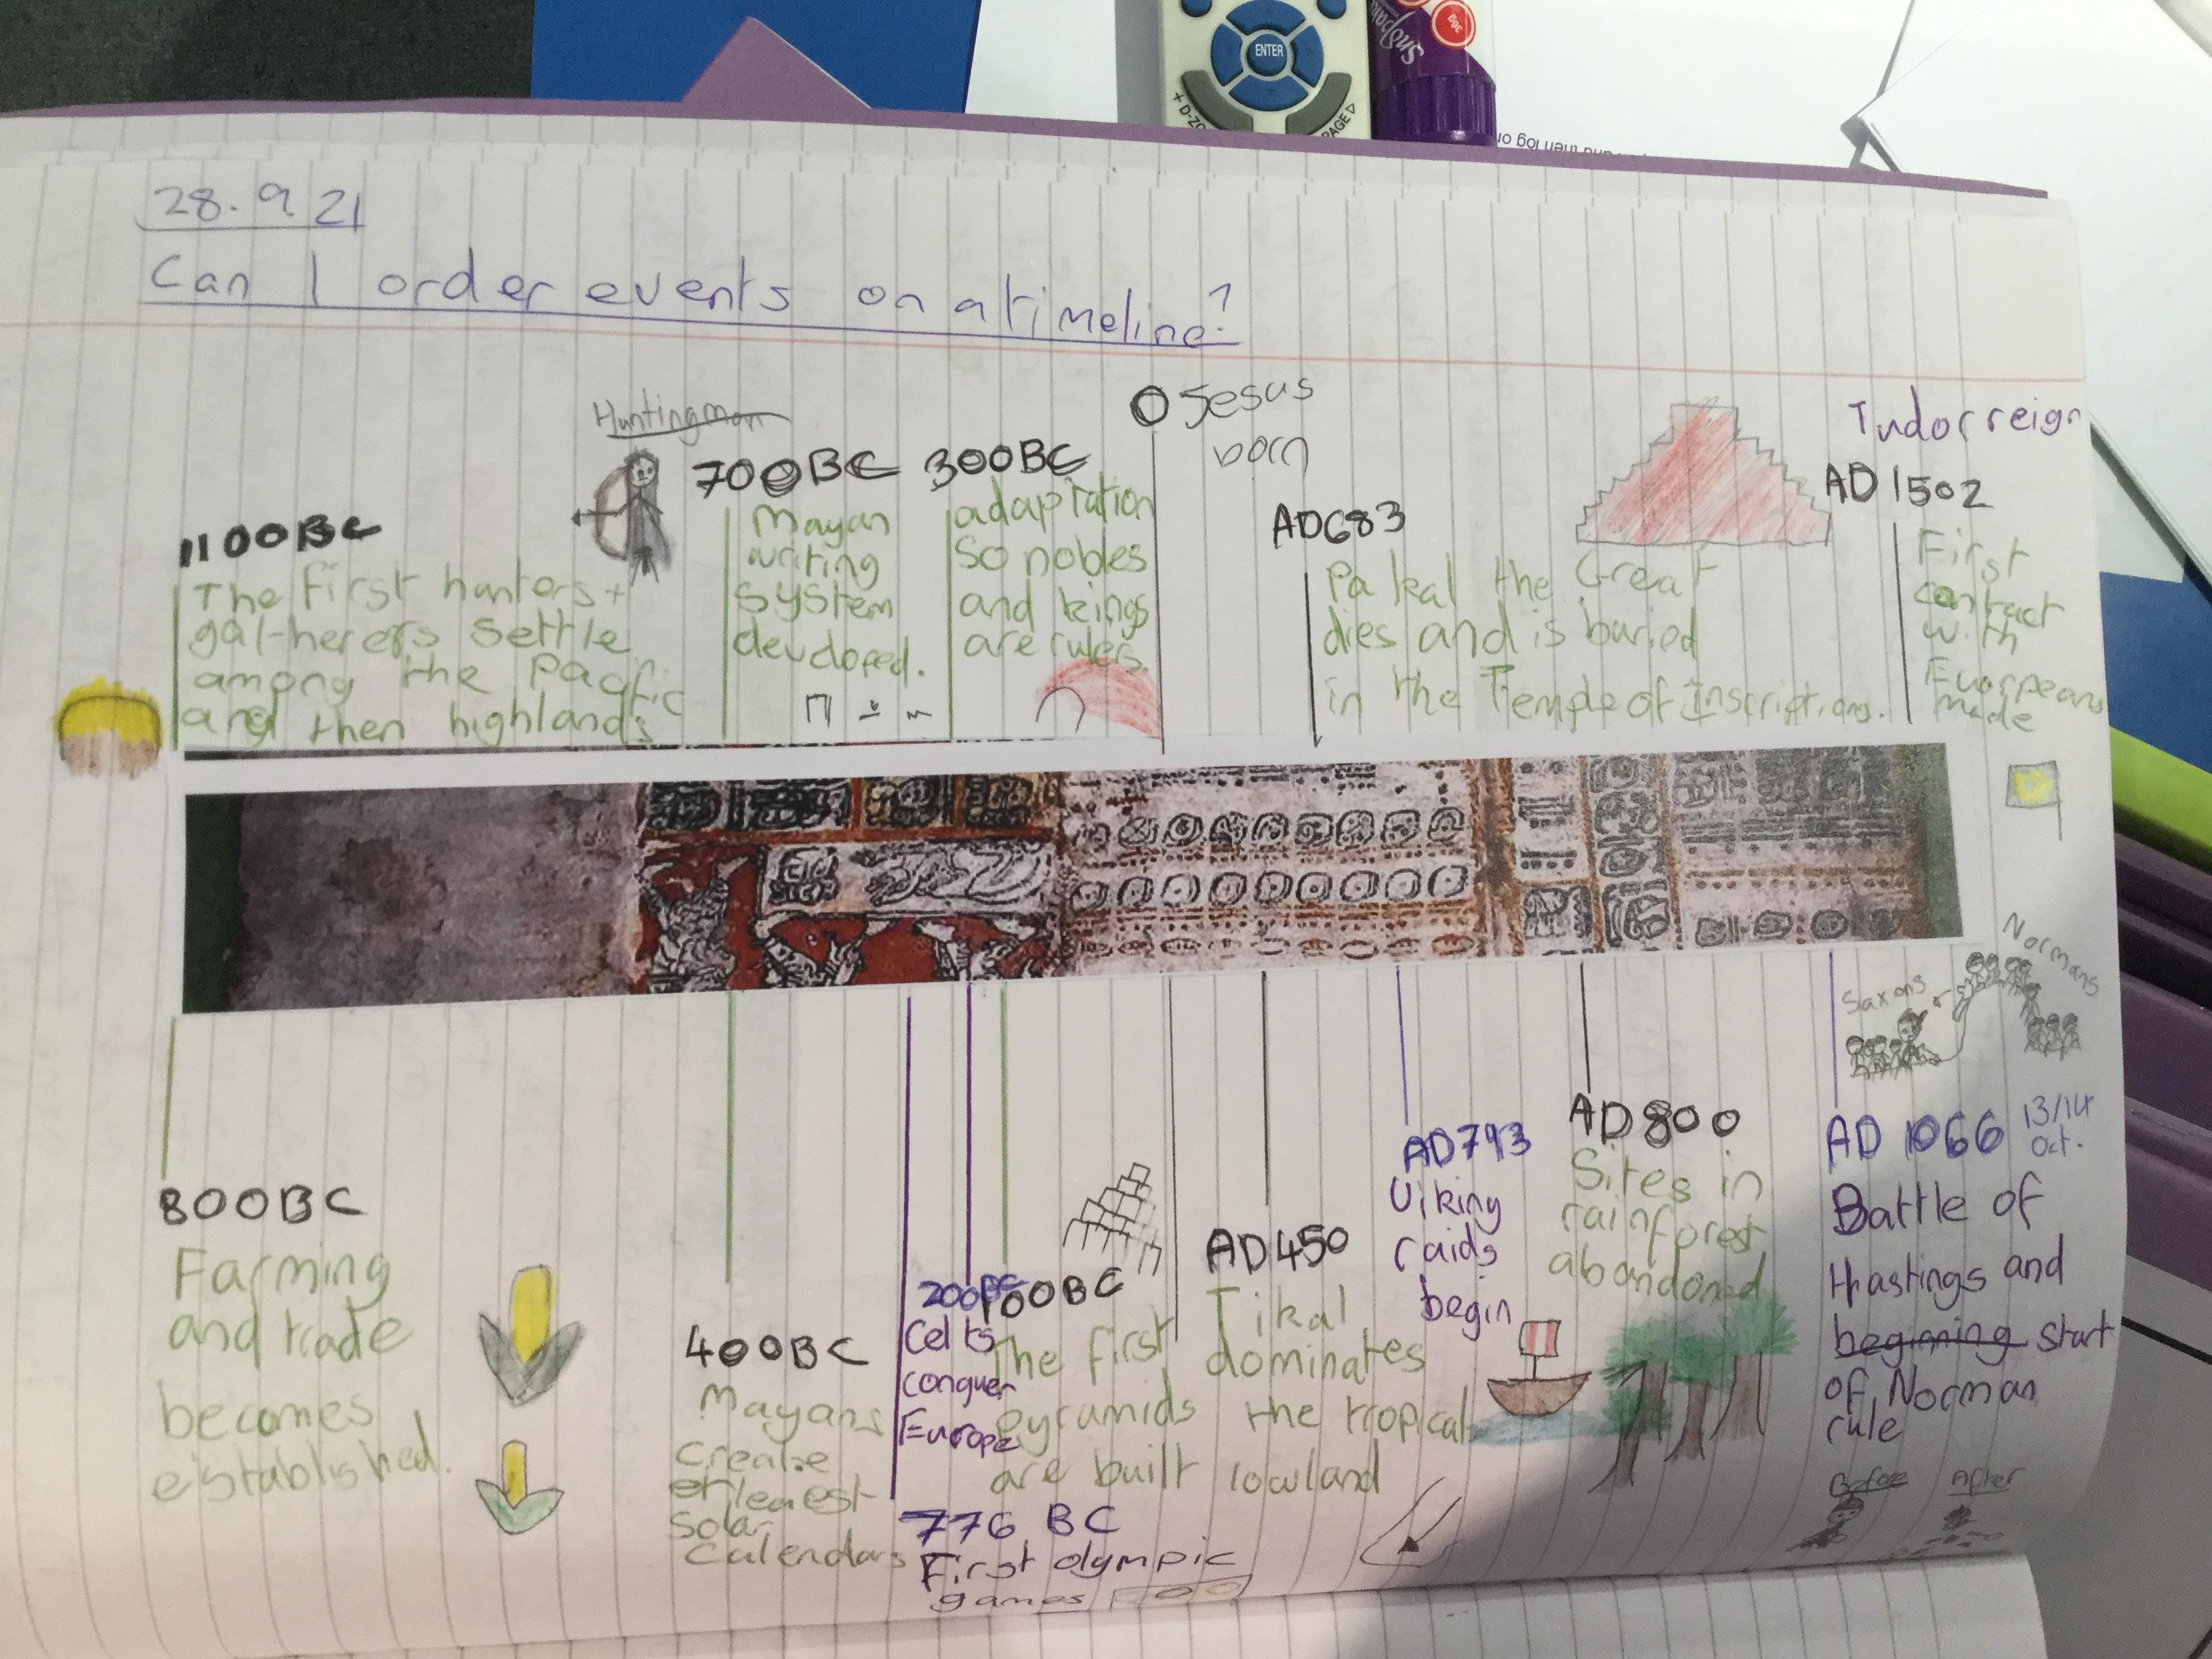 ENTER
+ D-ZO
PAGE
36g
Snopake
and then log on
28.9.21
Can I order events on a timeline?
Huntingman
0 Jesus
born
Tudor reign
1100BC
The first hunters +
gat-herers settle
among the Pacific
and then highlands
700BC
Mayan
writing
system
developed.
300BC
adaptation
so nobles
and kings
are rulers.
AD683
Pakal the Great
dies and is buried
in the Temple of Inscriptions.
AD 1502
First
contact
with
Europeans
made
Normans
Saxons
800BC
Farming
and trade
becomes
established.
400BC
Mayans
create
erleaest
Solar
Calendars
200BC
Celts
conquer
Europe
776 BC
First olympic
games
100BC
The first
pyramids
are built
AD450
Tikal
dominates
the tropical
lowland
AD793
Viking
raids
begin
AD800
Sites in
rainforest
abandoned
AD 1066 13/14
Oct.
Battle of
Hastings and
begining start
of Norman
rule
Before After